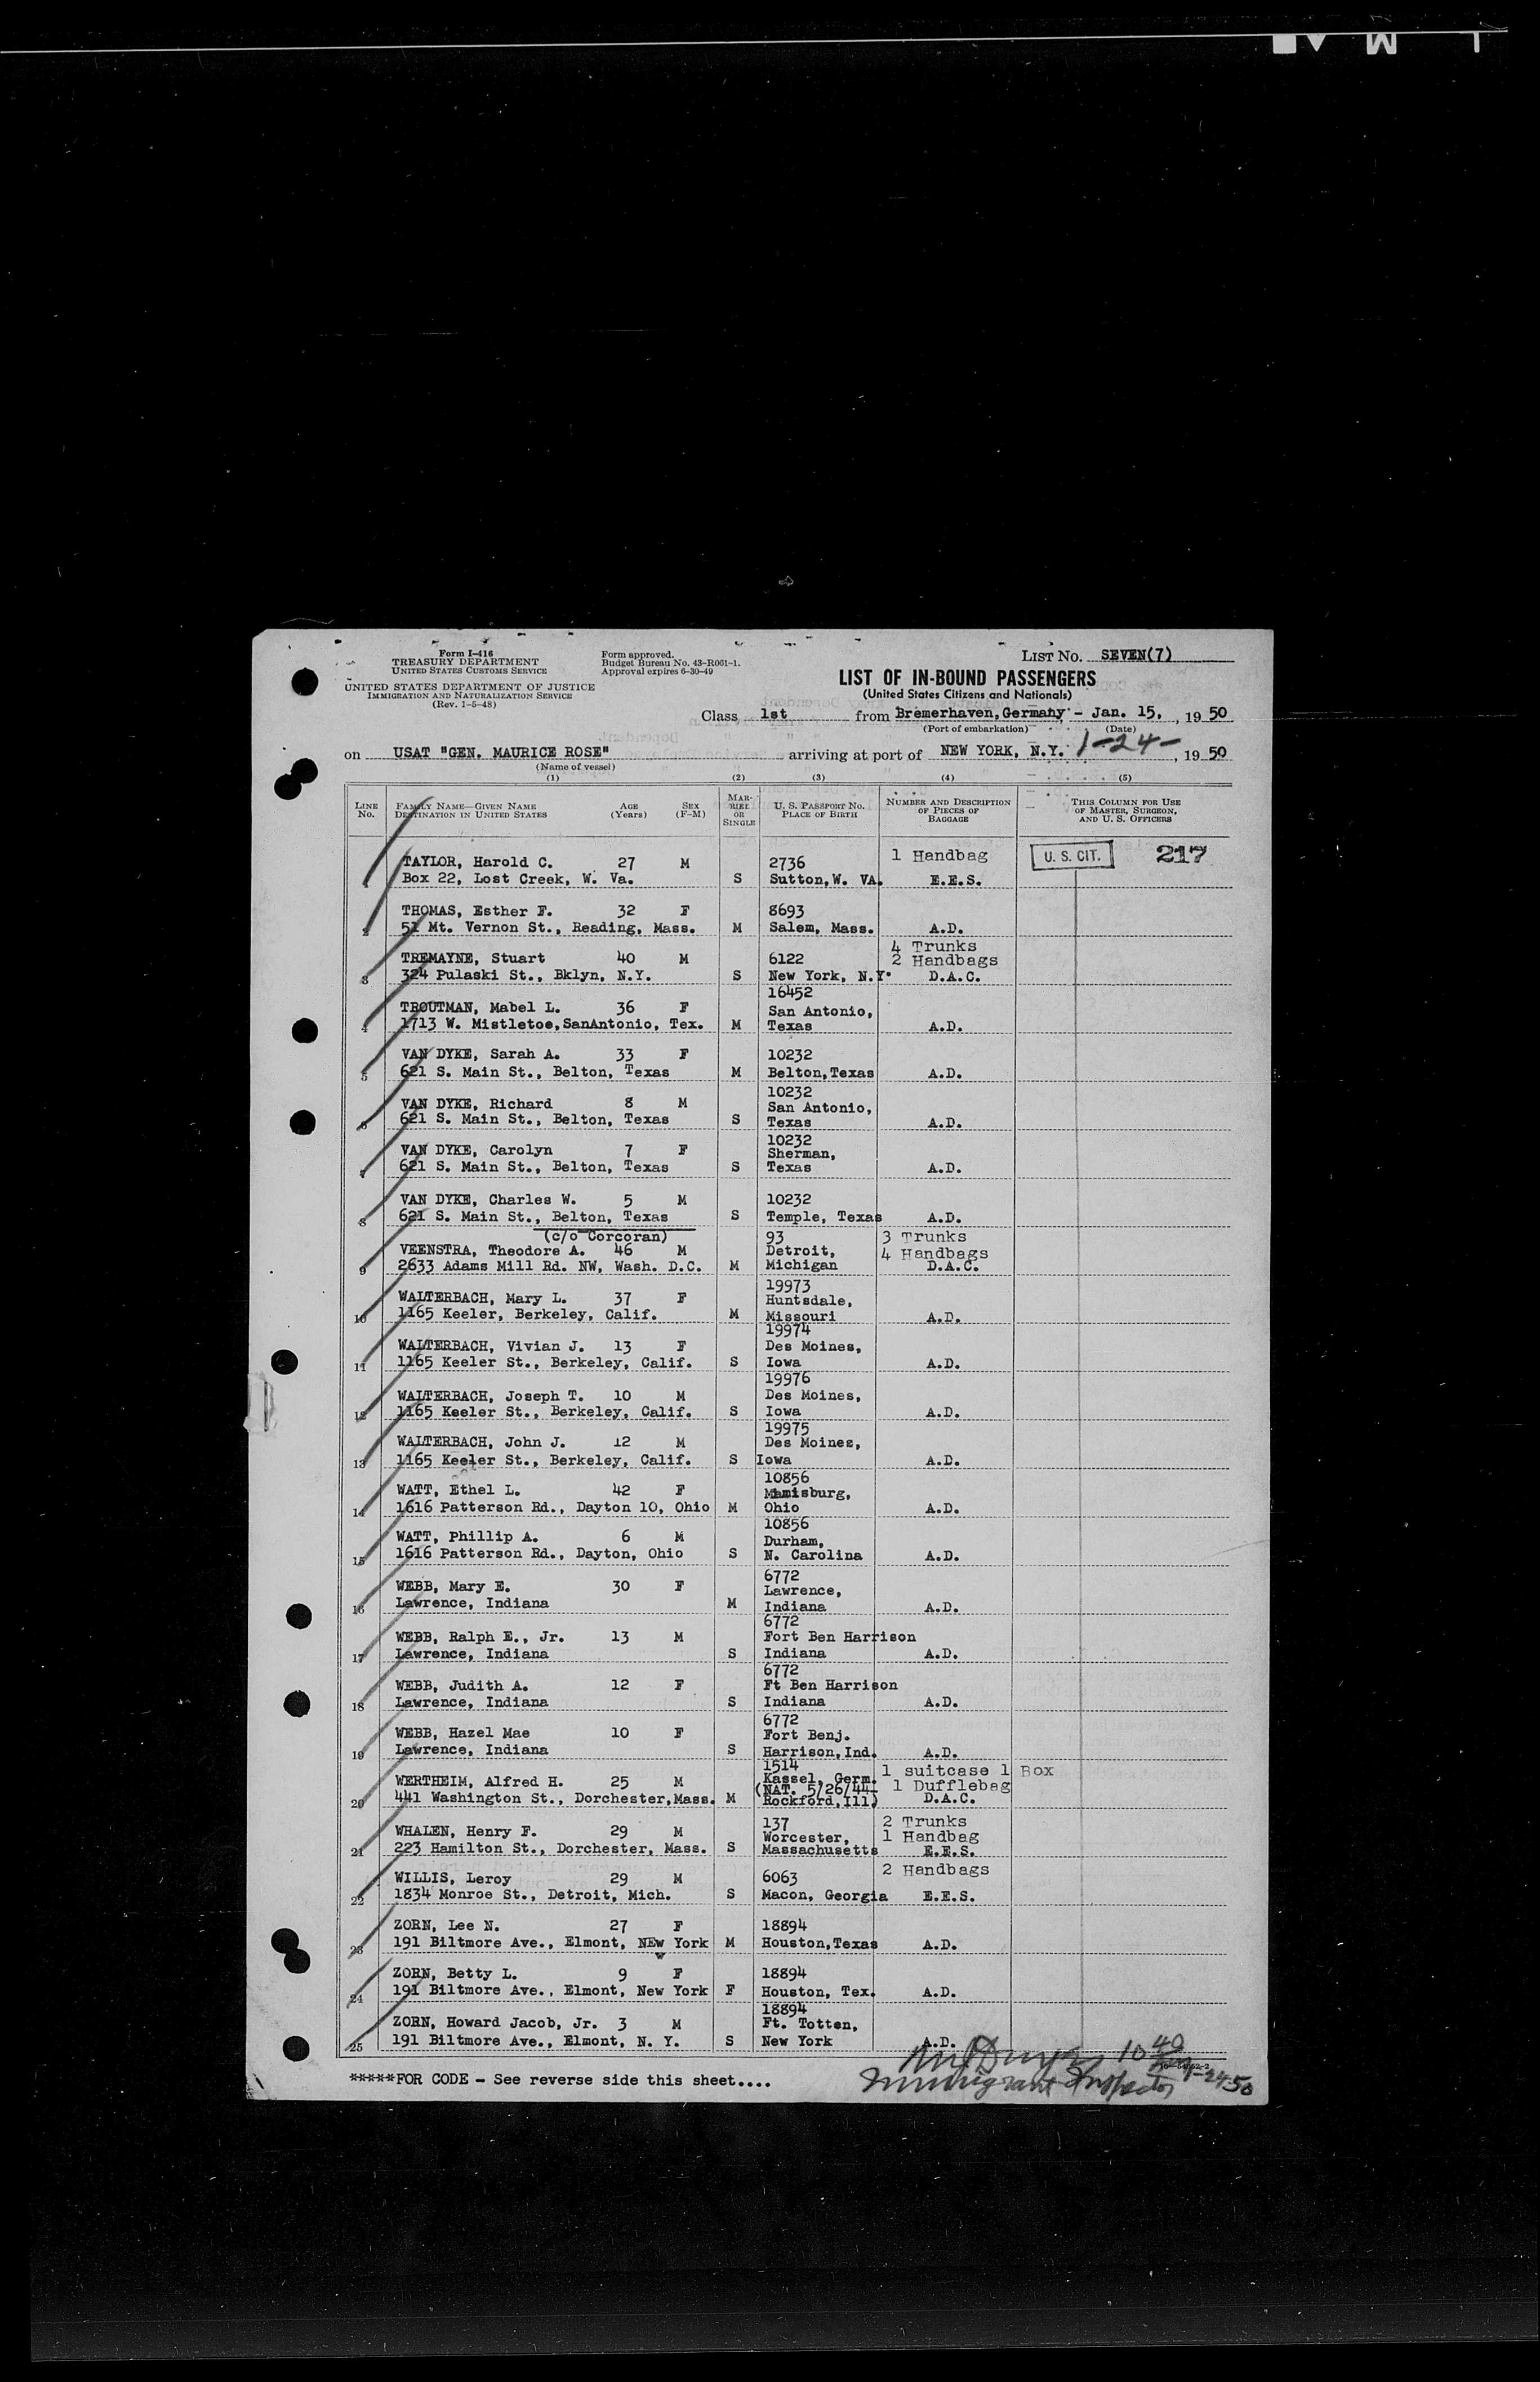 Form I-416
TREASURY DEPARTMENT
UNITED STATES CUSTOMS SERVICE
UNITED STATES DEPARTMENT OF JUSTICE
IMMIGRATION AND NATURALIZATION SERVICE
(Rev. 1-5-48)
Form approved.
Budget Bureau No. 43-R061-1.
Approval expires 6-30-49
LIST NO. SEVEN(7)
LIST OF IN-BOUND PASSENGERS
(United States Citizens and Nationals)
Class 1st from Bremerhaven, Germany - Jan. 15, , 19 50
(Port of embarkation) (Date)
on USAT "GEN. MAURICE ROSE" arriving at port of NEW YORK, N.Y. 1-24- , 19 50
(Name of vessel)
(1) (2) (3) (4) (5)
LINE NO. FAMILY NAME—GIVEN NAME DESTINATION IN UNITED STATES AGE (Years) SEX (F-M) MARRIED OR SINGLE U. S. PASSPORT NO. PLACE OF BIRTH NUMBER AND DESCRIPTION OF PIECES OF BAGGAGE THIS COLUMN FOR USE OF MASTER, SURGEON, AND U. S. OFFICERS
TAYLOR, Harold C. 27 M 2736 1 Handbag U. S. CIT. 217
1 Box 22, Lost Creek, W. Va. S Sutton, W. VA. E.E.S.
THOMAS, Esther F. 32 F 8693
2 51 Mt. Vernon St., Reading, Mass. M Salem, Mass. A.D.
4 Trunks
TREMAYNE, Stuart 40 M 6122 2 Handbags
3 324 Pulaski St., Bklyn, N.Y. S New York, N.Y. D.A.C.
16452
TROUTMAN, Mabel L. 36 F San Antonio,
4 1713 W. Mistletoe, SanAntonio, Tex. M Texas A.D.
VAN DYKE, Sarah A. 33 F 10232
5 621 S. Main St., Belton, Texas M Belton, Texas A.D.
10232
VAN DYKE, Richard 8 M San Antonio,
6 621 S. Main St., Belton, Texas S Texas A.D.
10232
VAN DYKE, Carolyn 7 F Sherman,
7 621 S. Main St., Belton, Texas S Texas A.D.
VAN DYKE, Charles W. 5 M 10232
8 621 S. Main St., Belton, Texas S Temple, Texas A.D.
(c/o Corcoran) 93 3 Trunks
VEENSTRA, Theodore A. 46 M Detroit, 4 Handbags
9 2633 Adams Mill Rd. NW, Wash. D.C. M Michigan D.A.C.
19973
WALTERBACH, Mary L. 37 F Huntsdale,
10 1165 Keeler, Berkeley, Calif. M Missouri A.D.
19974
WALTERBACH, Vivian J. 13 F Des Moines,
11 1165 Keeler St., Berkeley, Calif. S Iowa A.D.
19976
WALTERBACH, Joseph T. 10 M Des Moines,
12 1165 Keeler St., Berkeley, Calif. S Iowa A.D.
19975
WALTERBACH, John J. 12 M Des Moines,
13 1165 Keeler St., Berkeley, Calif. S Iowa A.D.
10856
WATT, Ethel L. 42 F
14 1616 Patterson Rd., Dayton 10, Ohio M Ohio A.D.
10856
WATT, Phillip A. 6 M Durham,
15 1616 Patterson Rd., Dayton, Ohio S N. Carolina A.D.
6772
WEBB, Mary E. 30 F Lawrence,
16 Lawrence, Indiana M Indiana A.D.
6772
WEBB, Ralph E., Jr. 13 M Fort Ben Harrison
17 Lawrence, Indiana S Indiana A.D.
6772
WEBB, Judith A. 12 F Ft Ben Harrison
18 Lawrence, Indiana S Indiana A.D.
6772
WEBB, Hazel Mae 10 F Fort Benj.
19 Lawrence, Indiana S Harrison, Ind. A.D.
1514 1 suitcase 1 Box
WERTHEIM, Alfred H. 25 M Kassel, Germ. (NAT. 5/26/44- 1 Dufflebag
20 441 Washington St., Dorchester, Mass. M Rockford, Ill) D.A.C.
137 2 Trunks
WHALEN, Henry F. 29 M Worcester, 1 Handbag
21 223 Hamilton St., Dorchester, Mass. S Massachusetts E.E.S.
WILLIS, Leroy 29 M 6063 2 Handbags
22 1834 Monroe St., Detroit, Mich. S Macon, Georgia E.E.S.
ZORN, Lee N. 27 F 18894
23 191 Biltmore Ave., Elmont, NEw York M Houston, Texas A.D.
w
ZORN, Betty L. 9 F 18894
24 191 Biltmore Ave., Elmont, New York F Houston, Tex. A.D.
18894
ZORN, Howard Jacob, Jr. 3 M Ft. Totten,
25 191 Biltmore Ave., Elmont, N. Y. S New York A.D.
10 40
*****FOR CODE - See reverse side this sheet.... Immigrant Inspector 1-24-50